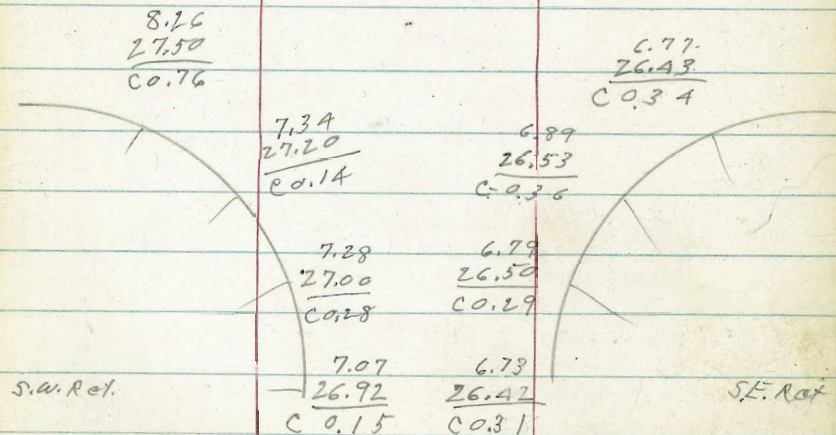 8.26
27.50
C 0.76
6.77
26.43
C 0.34
7.34
27.20
C 0.14
6.89
26.53
C-0.36
7.28
27.00
C 0.28
6.79
26.50
C 0.29
7.07
26.92
C 0.15
6.73
26.42
C 0.31
S.W. Ret.
S.E. Ret